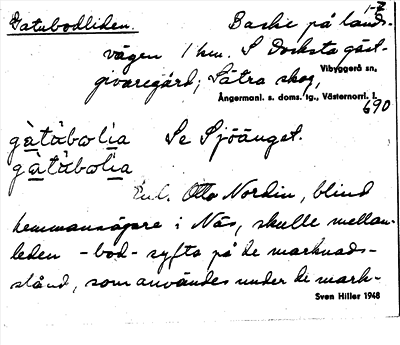 Gatubodliden.
1-2
Backe på lands-
vägen 1 km. S Docksta gäst-
givaregård; Sätra skog,
Vibyggerå sn,
Ångermanl. s. doms. tg., Västernorrl. l.
690
gàtùbolìa Se Sjöänget.
gàtùbolìa
Enl. Otto Nordin, blind
hemmansägare i Näs, skulle mellan-
leden -bod- syfta på de marknads-
stånd, som användes under de mark-
Sven Hiller 1948